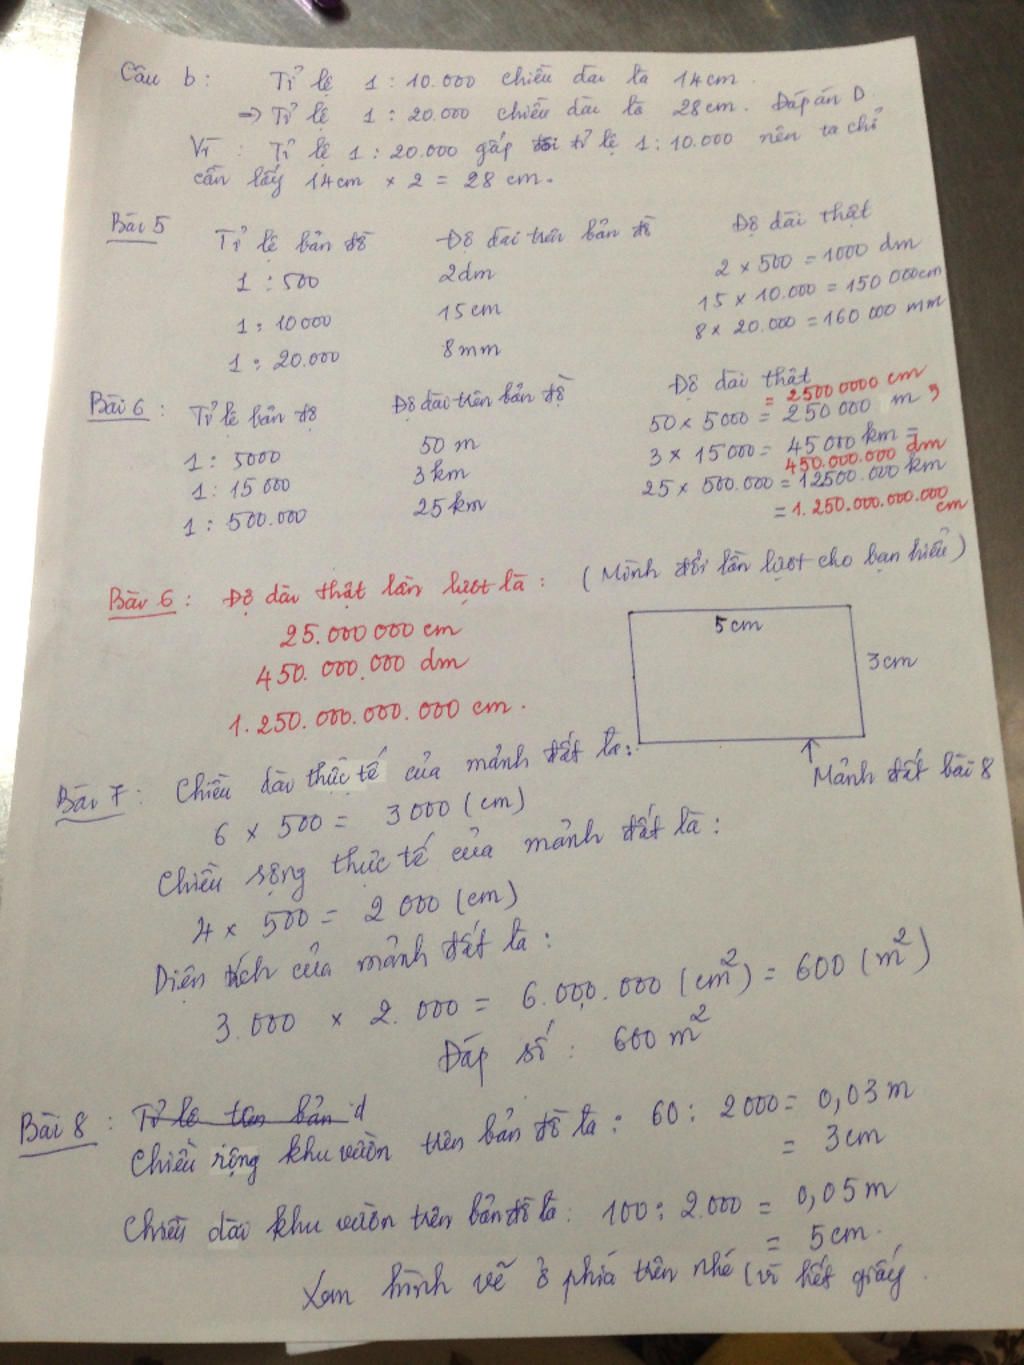 Câu b: Tỉ lệ 1 : 10.000 chiều dài là 14cm.
=> Tỉ lệ 1 : 20.000 chiều dài là 28cm. Đáp án D
Vì : Tỉ lệ 1 : 20.000 gấp tỉ lệ 1 : 10.000 nên ta chỉ
cần lấy 14cm × 2 = 28 cm.
Bài 5
Tỉ lệ bản đồ Độ dài trên bản đồ Độ dài thật
1 : 500 2dm 2 × 500 = 1000 dm
1 : 10000 15cm 15 × 10.000 = 150 000cm
1 : 20.000 8mm 8 × 20.000 = 160 000 mm
Bài 6 : Tỉ lệ bản đồ Độ dài trên bản đồ Độ dài thật
= 2500 0000 cm
1 : 5000 50 m 50 × 5000 = 250 000 m,
1 : 15 000 3km 3 × 15000 = 45 000 km =
450.000.000 dm
1 : 500.000 25km 25 × 500.000 = 12500.000 km
= 1.250.000.000.000 cm
Bài 6 : Độ dài thật lần lượt là : (Mình đổi lần lượt cho bạn hiểu)
25.000 000 cm
450.000.000 dm
1.250.000.000.000 cm.
5cm
3cm
Mảnh đất bài 8
Bài 7 : Chiều dài thực tế của mảnh đất là :
6 × 500 = 3000 (cm)
Chiều rộng thực tế của mảnh đất là :
4 × 500 = 2 000 (cm)
Diện tích của mảnh đất là :
3.000 × 2.000 = 6.000.000 (cm²) = 600 (m²)
Đáp số : 600 m²
Bài 8 : Tỉ lệ trên bản d
Chiều rộng khu vườn trên bản đồ là : 60 : 2000 = 0,03m
= 3cm
Chiều dài khu vườn trên bản đồ là : 100 : 2.000 = 0,05m
= 5cm.
Xem hình vẽ ở phía trên nhé (vì hết giấy.